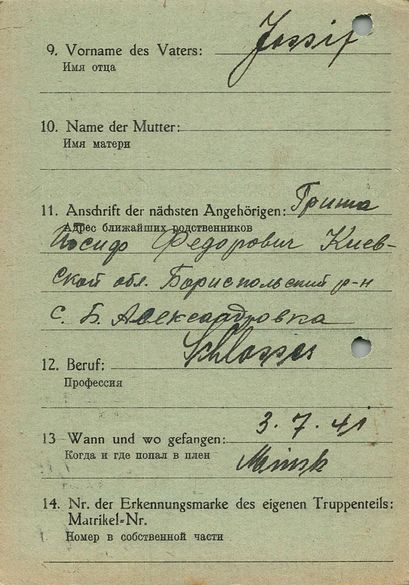 9. Vorname des Vaters: Jossif
Имя отца
10. Name der Mutter:
Имя матери
11. Anschrift der nächsten Angehörigen: Гриша
Адрес ближайших родственников
Иосиф Федорович Киев-
ской обл. Бориспольский р-н
с. Б. Александровка
12. Beruf: Schlosser
Профессия
13 Wann und wo gefangen: 3. 7. 41
Когда и где попал в плен Minsk
14. Nr. der Erkennungsmarke des eigenen Truppenteils:
Matrikel-Nr.
Номер в собственной части